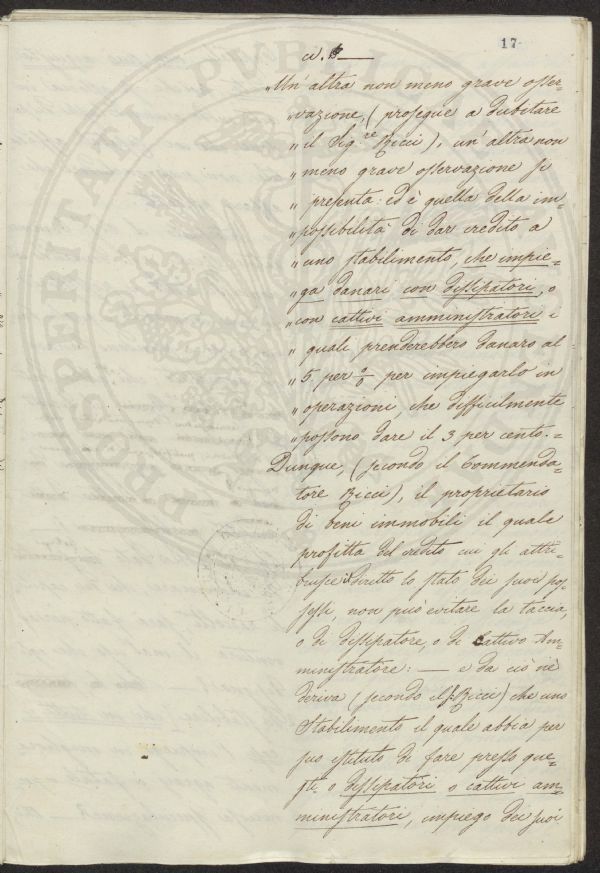 17
„Un' altra non meno grave osser-
„vazione, (prosegue a dubitare
„il Sig.re Ricci), un' altra non
„meno grave osservazione si
„presenta: ed è quella della im-
„possibilità di dar credito a
„uno stabilimento, che impie-
„ga danari con dissipatori, o
„con cattivi amministratori i
„quali prenderebbero danaro al
„5 per % per impiegarlo in
„operazioni, che difficilmente
„possono dare il 3 per cento.=
Dunque, (secondo il Commenda-
tore Ricci), il proprietario
di beni immobili il quale
profitta del credito cui gli attri-
buisce il diritto lo stato dei suoi pos-
sessi, non può evitare la taccia,
o di dissipatore, o di cattivo Am-
ministratore: — e da ciò ne
deriva (secondo il S. Ricci) che uno
Stabilimento il quale abbia per
suo istituto di fare presso que-
sti o dissipatori o cattivi am-
ministratori, impiego dei suoi
PROSPERITATI PVBLICAE